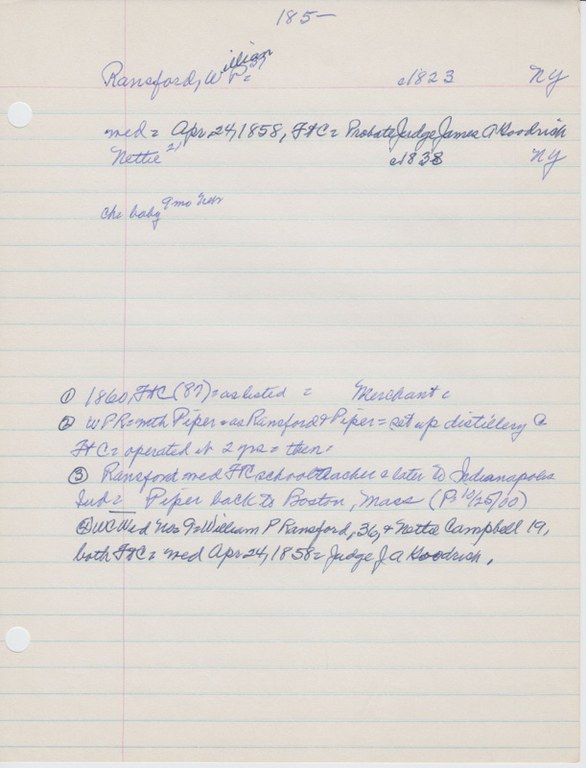 185-
Ransford, William P= c1823 NY
med= Apr 24, 1858, FtC= Probate Judge James A Goodrich
Nettie 21 c1838 NY
Chi baby 9 mo Neb
① 1860, FtC (87)= as listed = Merchant=
② WPR= with Piper= as Ransford & Piper= set up distillery @
FtC= operated it 2 yrs= then=
③ Ransford med FtC schoolteacher & later to Indianapolis
Ind= Piper back to Boston, Mass (P 10/25/00)
④ WC Wed Nos 9= William P Ransford, 36, & Netta Campbell 19,
both FtC= med Apr 24, 1858= Judge J A Goodrich.